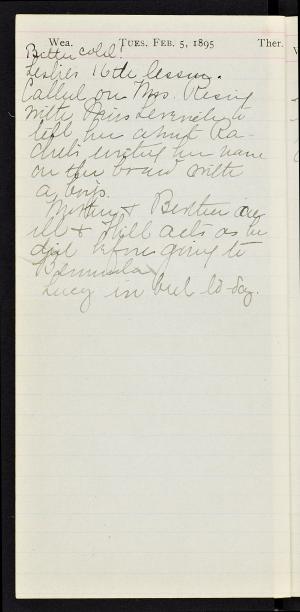 Wea. TUES. FEB. 5, 1895 Ther.
Bitter cold.
Leslie's 16th lesson.
Called on Mrs. Rising
with Miss Leverich to
tell her about Ra-
chel's writing her name
on the board with
a boy's.
Mother & are
ill & Will acts as he
did before going to
Bermuda.
Lucy in bed to-day.